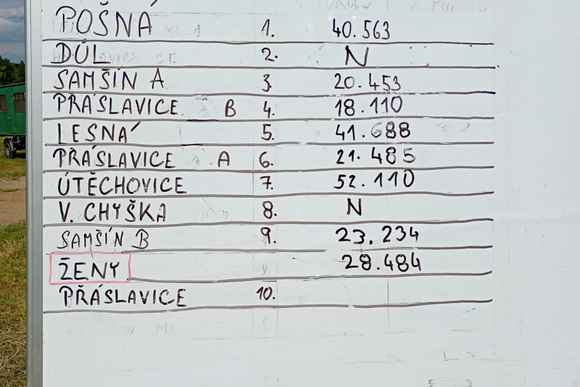 POŠNÁ 1. 40.563
DŮL 2. N
SAMŠÍN A 3. 20.453
PŘÁSLAVICE B 4. 18.110
LESNÁ 5. 41.688
PŘÁSLAVICE A 6. 21.485
ÚTĚCHOVICE 7. 52.110
V. CHYŠKA 8. N
SAMŠÍN B 9. 23.234
ŽENY 28.484
PŘÁSLAVICE 10.